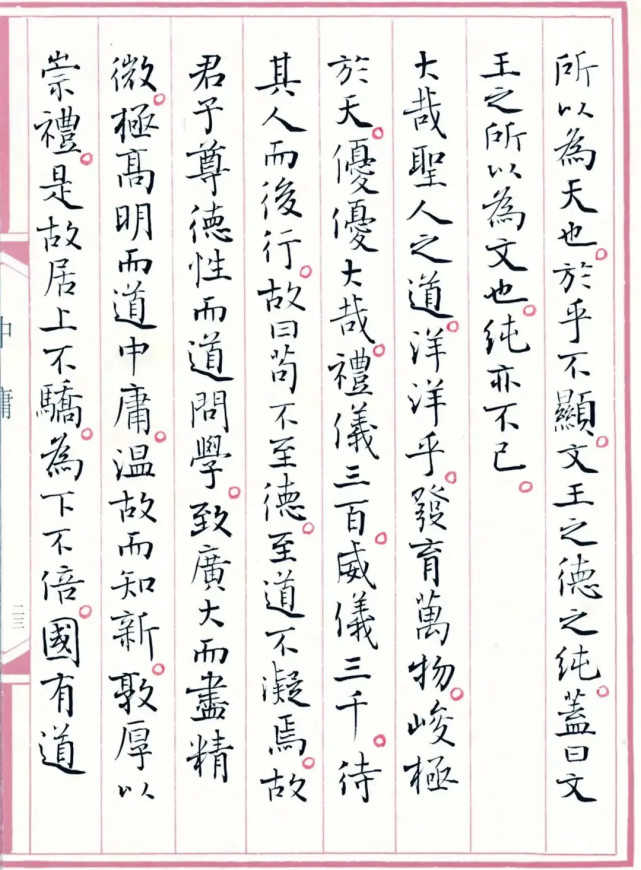 所以為天也。於乎不顯。文王之德之純。蓋曰文
王之所以為文也。純亦不已。
大哉聖人之道。洋洋乎。發育萬物。峻極
於天。優優大哉。禮儀三百。威儀三千。待
其人而後行。故曰苟不至德。至道不凝焉。故
君子尊德性而道問學。致廣大而盡精
微。極高明而道中庸。温故而知新。敦厚以
崇禮。是故居上不驕。為下不倍。國有道
中庸
二三